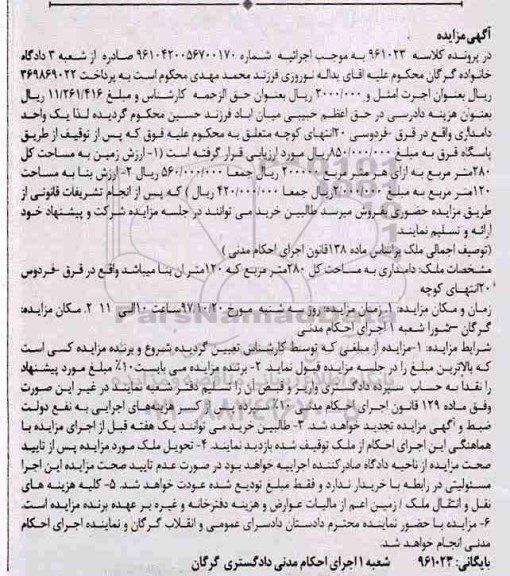 آگهی مزایده
در پرونده کلاسه ۹۶۱۰۲۳ به موجب اجرائیه شماره ۹۶۱۰۴۲۰۰۵۶۷۰۰۱۷۰ صادره از شعبه ۳ دادگاه
خانواده گرگان محکوم علیه آقای یداله نوروزی فرزند محمد مهدی محکوم است به پرداخت ۳۶۹۸۶۹۰۲۲
ریال بعنوان اجرت المثل و ۲/۰۰۰/۰۰۰ ریال بعنوان حق الزحمه کارشناس و مبلغ ۱۱/۲۶۱/۴۱۶ ریال
بعنوان هزینه دادرسی در حق اعظم حبیبی میان آباد فرزند حسین محکوم گردیده لذا یک واحد
دامداری واقع در قرق -فردوسی ۲۰انتهای کوچه متعلق به محکوم علیه فوق که پس از توقیف از طریق
پاسگاه قرق به مبلغ ۸۵۰/۰۰۰/۰۰۰ریال مورد ارزیابی قرار گرفته است (۱- ارزش زمین به مساحت کل
۲۸۰متر مربع به ازای هر متر مربع ۲۰۰۰۰۰۰ ریال جمعا ۵۶۰/۰۰۰/۰۰۰ ریال ۲- ارزش بنا به مساحت
۱۲۰متر مربع به مبلغ ۲/۰۰۰/۰۰۰ریال جمعا ۴۲۰/۰۰۰/۰۰۰ ریال) که پس از انجام تشریفات قانونی از
طریق مزایده حضوری بفروش میرسد طالبین خرید می توانند در جلسه مزایده شرکت و پیشنهاد خود
ارائه و تسلیم نمایند.
(توصیف اجمالی ملک براساس ماده ۱۳۸قانون اجرای احکام مدنی)
مشخصات ملک: دامداری به مساحت کل ۲۸۰متر مربع که ۱۲۰متر آن بنا میباشد واقع در قرق -فردوس
۲۰انتهای کوچه
زمان و مکان مزایده: ۱. زمان مزایده: روز سه شنبه مورخ ۹۷/۱۰/۲۰ساعت ۱۰الی ۱۱ ۲. مکان مزایده:
گرگان -شورا شعبه ۱ اجرای احکام مدنی
شرایط مزایده: ۱-مزایده از مبلغی که توسط کارشناس تعیین گردیده شروع و برنده مزایده کسی است
که بالاترین مبلغ را در جلسه مزایده قبول نماید. ۲- برنده مزایده می بایست ۱۰٪ مبلغ مورد پیشنهاد
را نقدا به حساب سپرده دادگستری واریز و قبض آن را تسلیم دفتر شعبه نمایند در غیر این صورت
وفق ماده ۱۲۹ قانون اجرای احکام مدنی سپرده پس از کسر هزینه های اجرایی به نفع دولت
ضبط و آگهی مزایده تجدید خواهد شد. ۳- طالبین خرید می توانند یک هفته قبل از اجرای مزایده با
هماهنگی این اجرای احکام از ملک توقیف شده بازدید نمایند. ۴- تحویل ملک مورد مزایده پس از تایید
صحت مزایده از ناحیه دادگاه صادرکننده اجراییه خواهد بود در صورت عدم تایید صحت مزایده این اجرا
مسئولیتی در رابطه با خریدار ندارد و فقط مبلغ تودیع شده عودت خواهد شد. ۵- کلیه هزینه های
نقل و انتقال ملک / زمین اعم از مالیات عوارض و هزینه دفترخانه و غیره بر عهده برنده مزایده است.
۶- مزایده با حضور نماینده محترم دادستان دادسرای عمومی و انقلاب گرگان و نماینده اجرای احکام
مدنی انجام خواهد شد.
بایگانی: ۹۶۱۰۲۳ شعبه ۱ اجرای احکام مدنی دادگستری گرگان